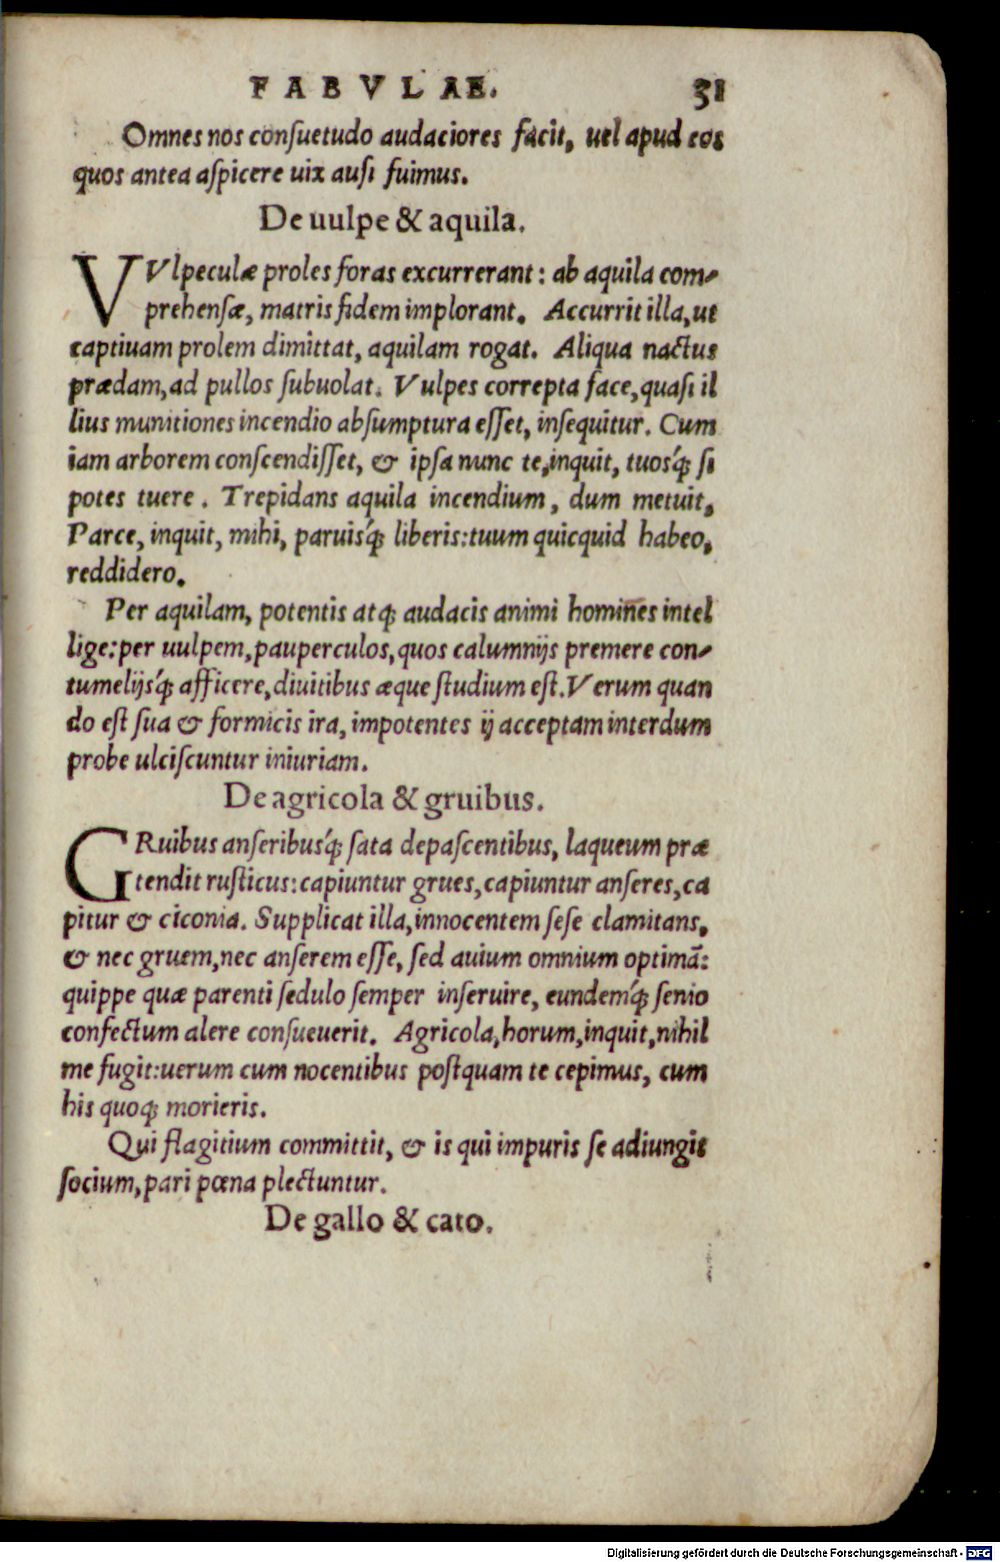 FABVLAE. 31
Omnes nos conſuetudo audaciores facit, uel apud eos
quos antea aſpicere uix auſi fuimus.
De uulpe & aquila.
VVlpeculæ proles foras excurrerant: ab aquila com-
prehenſæ, matris fidem implorant. Accurrit illa, ut
captiuam prolem dimittat, aquilam rogat. Aliqua nactus
prædam, ad pullos ſubuolat. Vulpes correpta face, quaſi il
lius munitiones incendio abſumptura eſſet, inſequitur. Cum
iam arborem conſcendiſſet, & ipſa nunc te, inquit, tuosq́; ſi
potes tuere. Trepidans aquila incendium, dum metuit,
Parce, inquit, mihi, paruisq́; liberis: tuum quicquid habeo,
reddidero.
Per aquilam, potentis atq; audacis animi homines intel
lige: per uulpem, pauperculos, quos calumnijs premere con-
tumelijsq́; afficere, diuitibus æque ſtudium eſt. Verum quan
do eſt ſua & formicis ira, impotentes ij acceptam interdum
probe ulciſcuntur iniuriam.
De agricola & gruibus.
GRuibus anſeribusq́; ſata depaſcentibus, laqueum præ
tendit ruſticus: capiuntur grues, capiuntur anſeres, ca
pitur & ciconia. Supplicat illa, innocentem ſeſe clamitans,
& nec gruem, nec anſerem eſſe, ſed auium omnium optimā:
quippe quæ parenti ſedulo ſemper inſeruire, eundemq́; ſenio
confectum alere conſueuerit. Agricola, horum, inquit, nihil
me fugit: uerum cum nocentibus poſtquam te cepimus, cum
his quoq; morieris.
Qui flagitium committit, & is qui impuris ſe adiungit
ſocium, pari pœna plectuntur.
De gallo & cato.
Digitalisierung gefördert durch die Deutsche Forschungsgemeinschaft - DFG